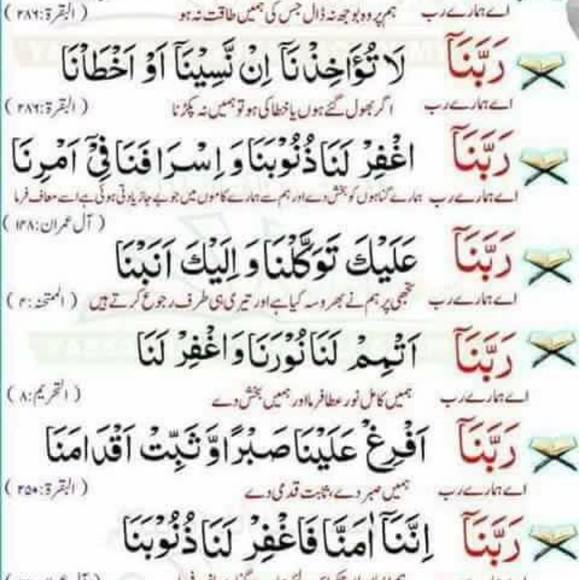 اے ہمارے رب ہم پر وہ بوجھ نہ ڈال جس کی ہمیں طاقت نہ ہو (البقرۃ:۲۸۶)
رَبَّنَا لَا تُؤَاخِذْنَا اِنْ نَّسِيْنَا اَوْ اَخْطَانَا
اے ہمارے رب اگر بھول گئے ہوں یا خطا کی ہو تو ہمیں نہ پکڑنا (البقرۃ:۲۸۶)
رَبَّنَا اغْفِرْ لَنَا ذُنُوْبَنَا وَاِسْرَافَنَا فِيْ اَمْرِنَا
اے ہمارے رب ہمارے گناہوں کو بخش دے اور ہم سے ہمارے کاموں میں جو بے جا زیادتی ہوئی ہے اسے معاف فرما
(آل عمران:۱۴۸)
رَبَّنَا عَلَيْكَ تَوَكَّلْنَا وَاِلَيْكَ اَنَبْنَا
اے ہمارے رب تجھی پر ہم نے بھروسہ کیا ہے اور تیری ہی طرف رجوع کرتے ہیں (الممتحنۃ:۴)
رَبَّنَا اَتْمِمْ لَنَا نُوْرَنَا وَاغْفِرْ لَنَا
اے ہمارے رب ہمیں کامل نور عطا فرما اور ہمیں بخش دے (التحریم:۸)
رَبَّنَا اَفْرِغْ عَلَيْنَا صَبْرًا وَّثَبِّتْ اَقْدَامَنَا
اے ہمارے رب ہمیں صبر دے، ثابت قدمی دے (البقرۃ:۲۵۰)
رَبَّنَا اِنَّنَا اٰمَنَّا فَاغْفِرْ لَنَا ذُنُوْبَنَا